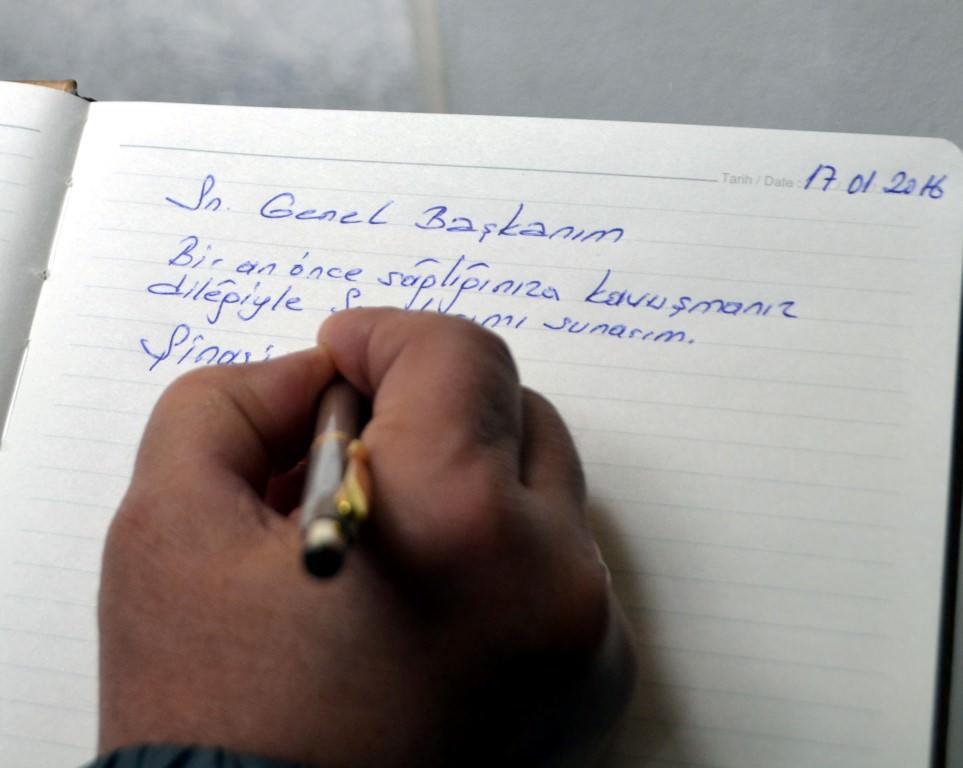 Tarih / Date : 17 01 2016
Sn. Genel Başkanım
Bir an önce sağlığınıza kavuşmanız
dileğiyle sunarım.
Şinasi